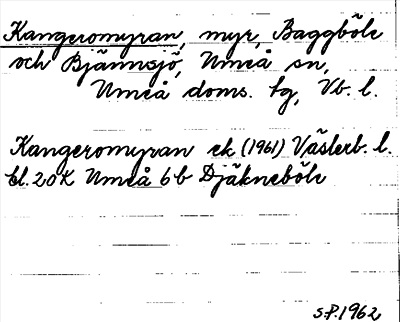 Kangeromyran, myr, Baggböle
och Bjännsjö, Umeå sn,
Umeå doms. tg, Vb. l.
Kangeromyran ek (1961) Västerb. l.
bl. 20K Umeå 6b Djäkneböle
S.P. 1962